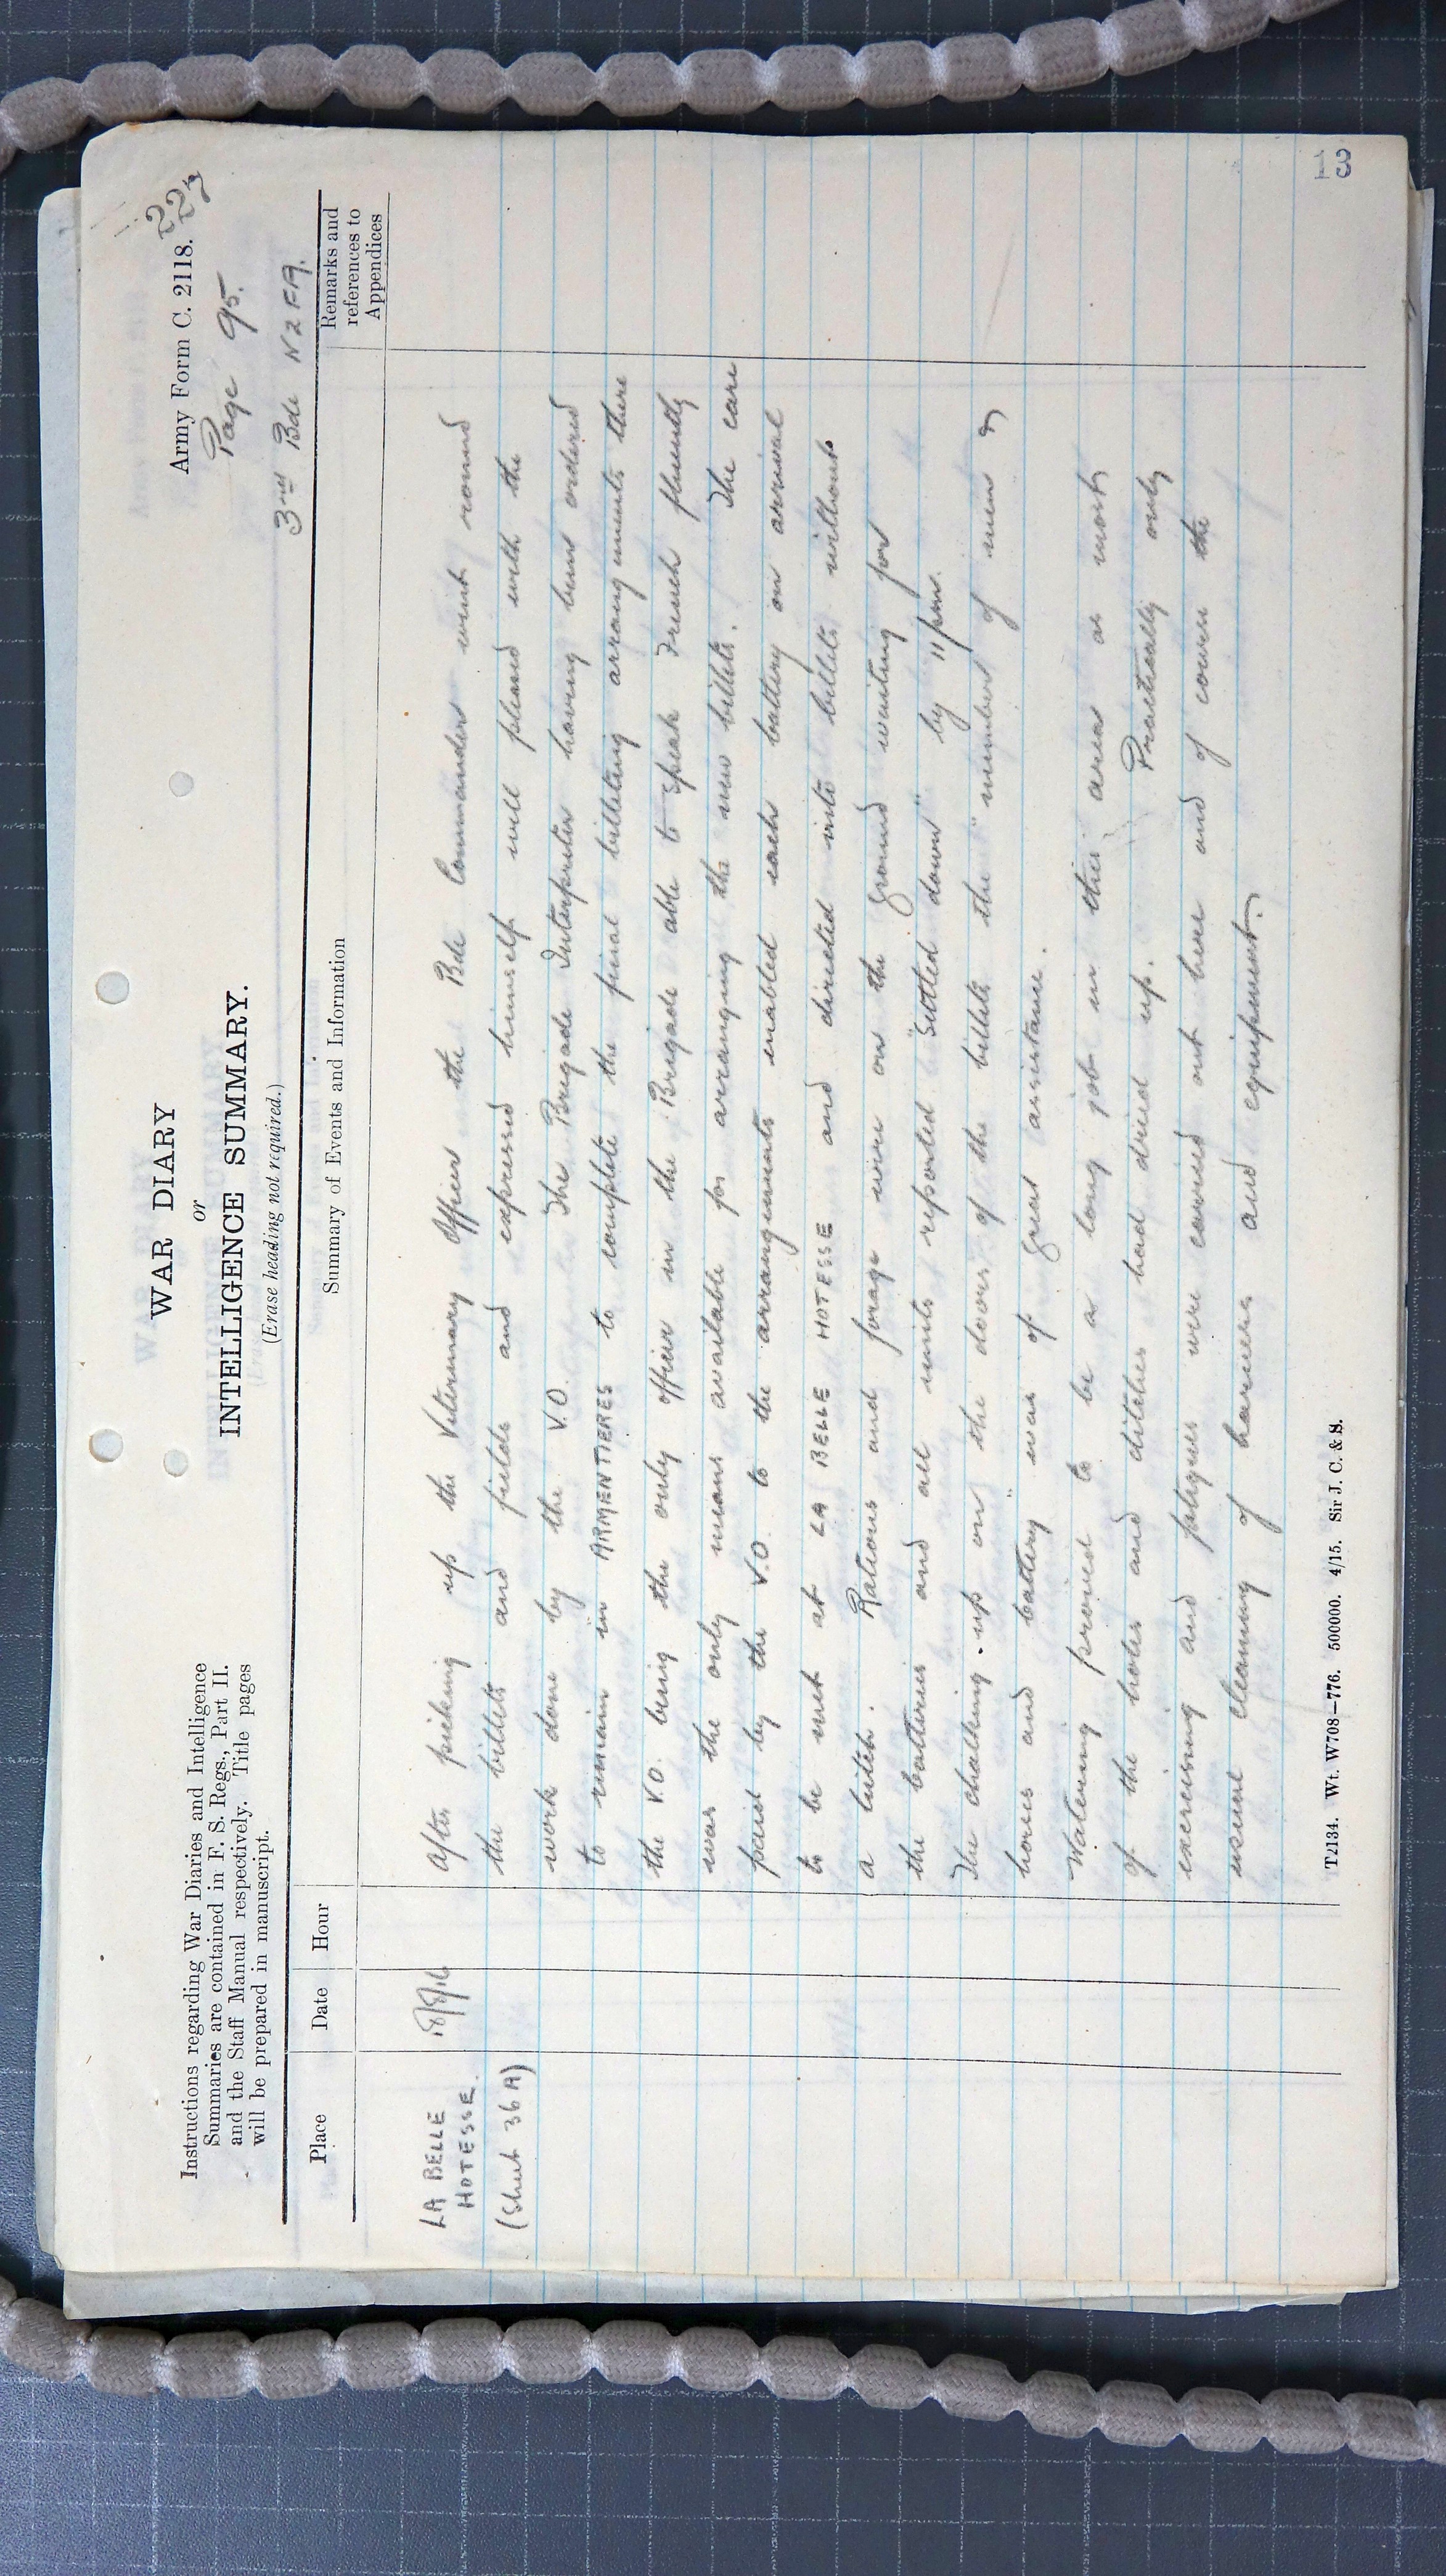 Army Form C. 2118.
227
Page 95.
3rd Bde NZFA.
WAR DIARY
or
INTELLIGENCE SUMMARY.
(Erase heading not required.)
Instructions regarding War Diaries and Intelligence
Summaries are contained in F. S. Regs., Part II.
and the Staff Manual respectively. Title pages
will be prepared in manuscript.
Place Date Hour Summary of Events and Information Remarks and references to Appendices
LA BELLE HOTESSE. (Sheet 36A)
18/8/16
After picking up the Veterinary Officer the Bde Commander went round
the billets and fields and expressed himself well pleased with the
work done by the V.O. The Brigade Interpreter having been ordered
to remain in ARMENTIERES to complete the final billeting arrangements there
the V.O. being the only officer in the Brigade able to speak French fluently
was the only means available for arranging the new billets. The care
paid by the V.O. to the arrangements enabled each battery on arrival
to be met at LA BELLE HOTESSE and directed into billets without
a hitch. Rations and forage were on the ground waiting for
the batteries and all units reported "Settled down" by 11pm.
The chalking-up on the doors of the billets the "number of men &
horses and battery" was of great assistance.
Watering proved to be a long job in this area as most
of the holes and ditches had dried up. Practically only
exercising and fatigues were carried out here and of course the
usual cleaning of harness and equipment.
T2134. Wt. W708—776. 500000. 4/15. Sir J. C. & S.
13